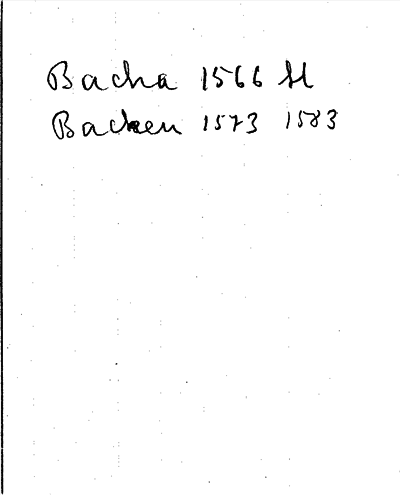 Bacha 1566 Sl
Backen 1573 1583